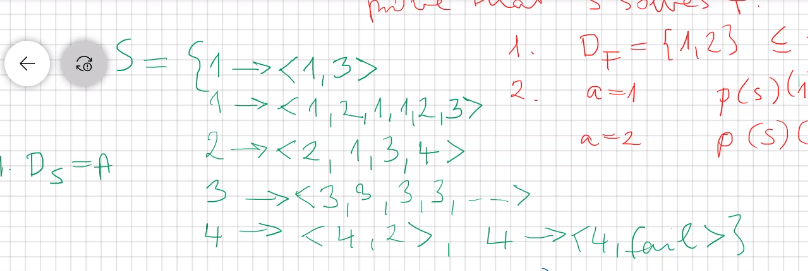 prove that S solves F.
S = { 1 → <1,3>
1 → <1,2,1,1,2,3>
2 → <2, 1,3,4>
3 → <3,3,3,3,...>
4 → <4,2>, 4 → <4,fail>}
1. D_S = A
1. D_F = {1,2} ⊆
2. a=1 p(S)(1
a=2 p(S)(